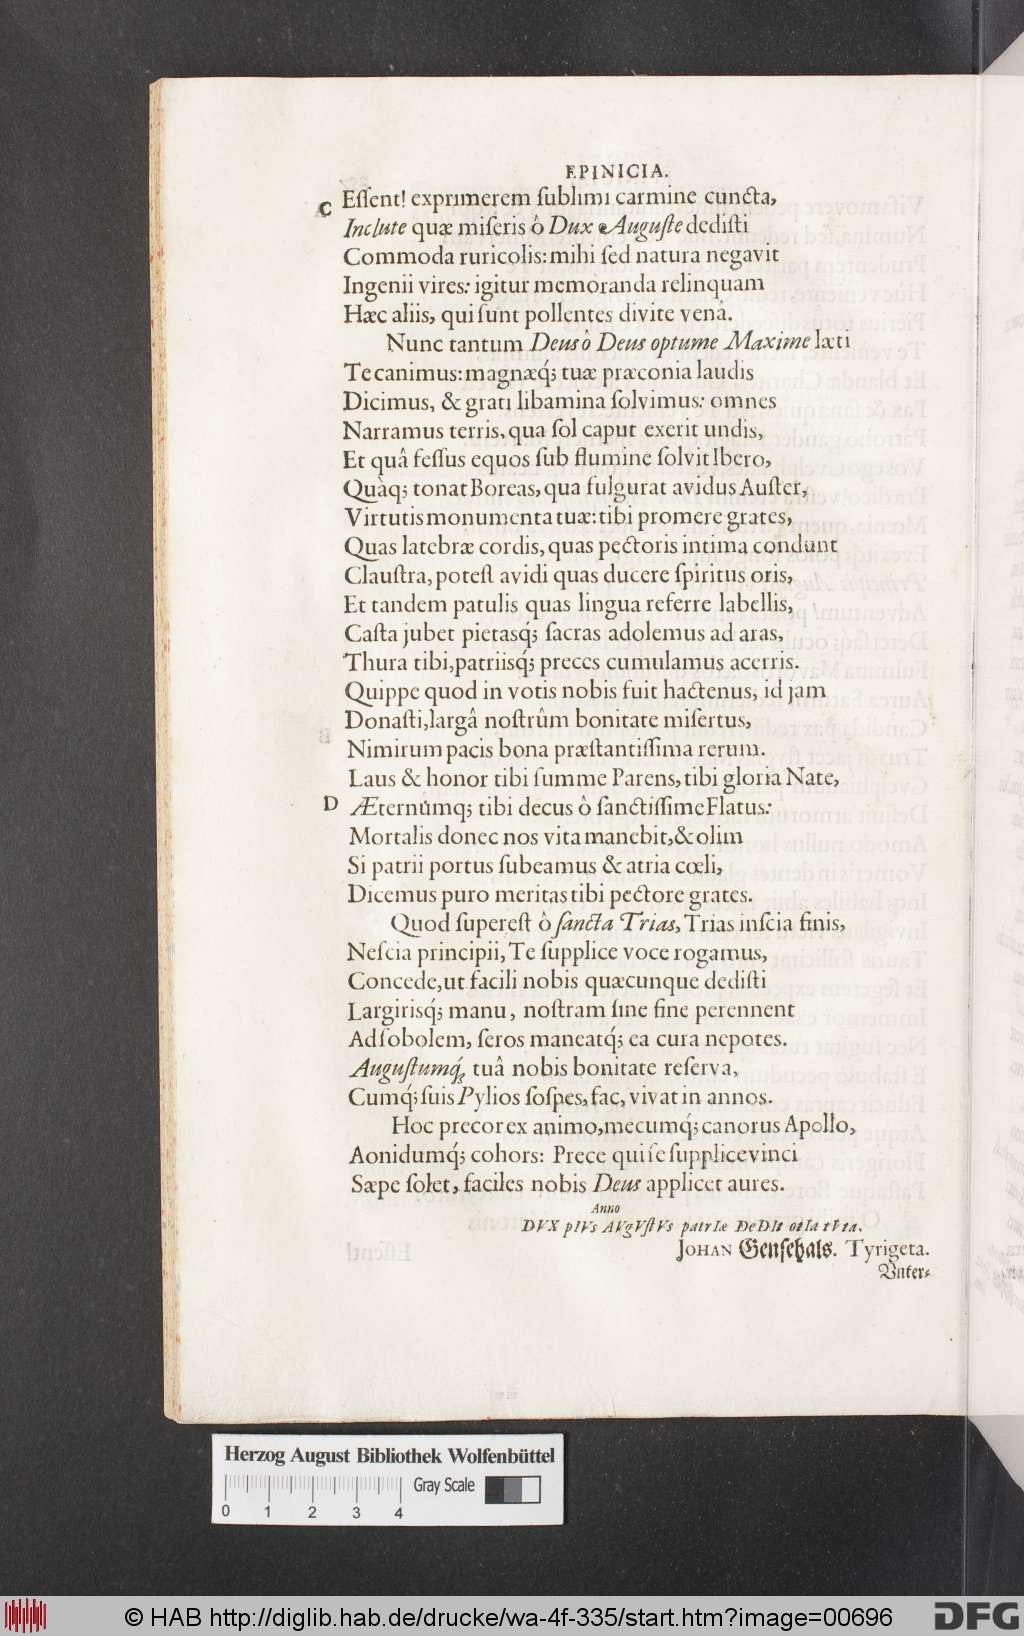 EPINICIA.
C Eſſent! exprimerem ſublimi carmine cuncta,
Inclute quæ miſeris ô Dux Auguſte dediſti
Commoda ruricolis: mihi ſed natura negavit
Ingenii vires: igitur memoranda relinquam
Hæc aliis, qui ſunt pollentes divite venâ.
Nunc tantum Deus ô Deus optume Maxime læti
Te canimus: magnæq́; tuæ præconia laudis
Dicimus, & grati libamina ſolvimus: omnes
Narramus terris, qua ſol caput exerit undis,
Et quâ feſſus equos ſub flumine ſolvit Ibero,
Quàq; tonat Boreas, qua fulgurat avidus Auſter,
Virtutis monumenta tuæ: tibi promere grates,
Quas latebræ cordis, quas pectoris intima condunt
Clauſtra, poteſt avidi quas ducere ſpiritus oris,
Et tandem patulis quas lingua referre labellis,
Caſta jubet pietasq́; ſacras adolemus ad aras,
Thura tibi, patriisq́; preces cumulamus acerris.
Quippe quod in votis nobis fuit hactenus, id jam
Donaſti, largâ noſtrûm bonitate miſertus,
Nimirum pacis bona præſtantiſſima rerum.
Laus & honor tibi ſumme Parens, tibi gloria Nate,
D Æternùmq; tibi decus ô ſanctiſſime Flatus:
Mortalis donec nos vita manebit, & olim
Si patrii portus ſubeamus & atria cœli,
Dicemus puro meritas tibi pectore grates.
Quod ſupereſt ô ſancta Trias, Trias inſcia finis,
Neſcia principii, Te ſupplice voce rogamus,
Concede, ut facili nobis quæcunque dediſti
Largirisq́; manu, noſtram ſine fine perennent
Ad ſobolem, ſeros maneatq́; ea cura nepotes.
Auguſtumq́; tuâ nobis bonitate reſerva,
Cumq́; ſuis Pylios ſoſpes, fac, vivat in annos.
Hoc precor ex animo, mecumq́; canorus Apollo,
Aonidumq́; cohors: Prece qui ſe ſupplice vinci
Sæpe ſolet, faciles nobis Deus applicet aures.
Anno
DVX pIVs AVgVſtVs patrIæ DeDIt otIa tVta.
JOHAN Genſehals. Tyrigeta.
Vnter⸗
Herzog August Bibliothek Wolfenbüttel
Gray Scale
0 1 2 3 4
© HAB http://diglib.hab.de/drucke/wa-4f-335/start.htm?image=00696
DFG